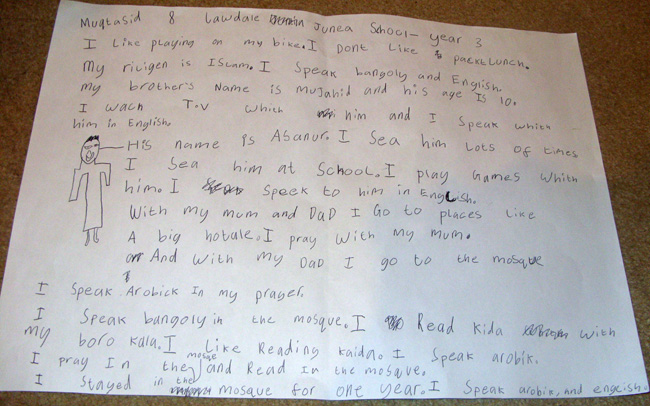 Muqtasid 8 Lawdale Junea School - year 3
I Like playing on my bike. I Dont Like packt Lunch.
My riligen is ISLam. I Speak bangoly and English.
my brother's Name is mujahid and his age Is 10.
I wach T.V whith him and I Speak whith
him in English.
His name is Abanur. I Sea him Lots of times
I Sea him at School. I play Games whith
him. I Speek to him in English.
With my mum and DaD I Go to places Like
A big hotale. I pray with my mum.
And with my DaD I go to the mosque
I Speak Arobick In my prayer.
I Speak bangoly in the mosque. I Read kida with
my boro kala. I Like Reading kaida. I Speak arobik.
I pray In the mosque and Read In the mosque.
I Stayed in the mosque for one year. I Speak arobik, and engcish.